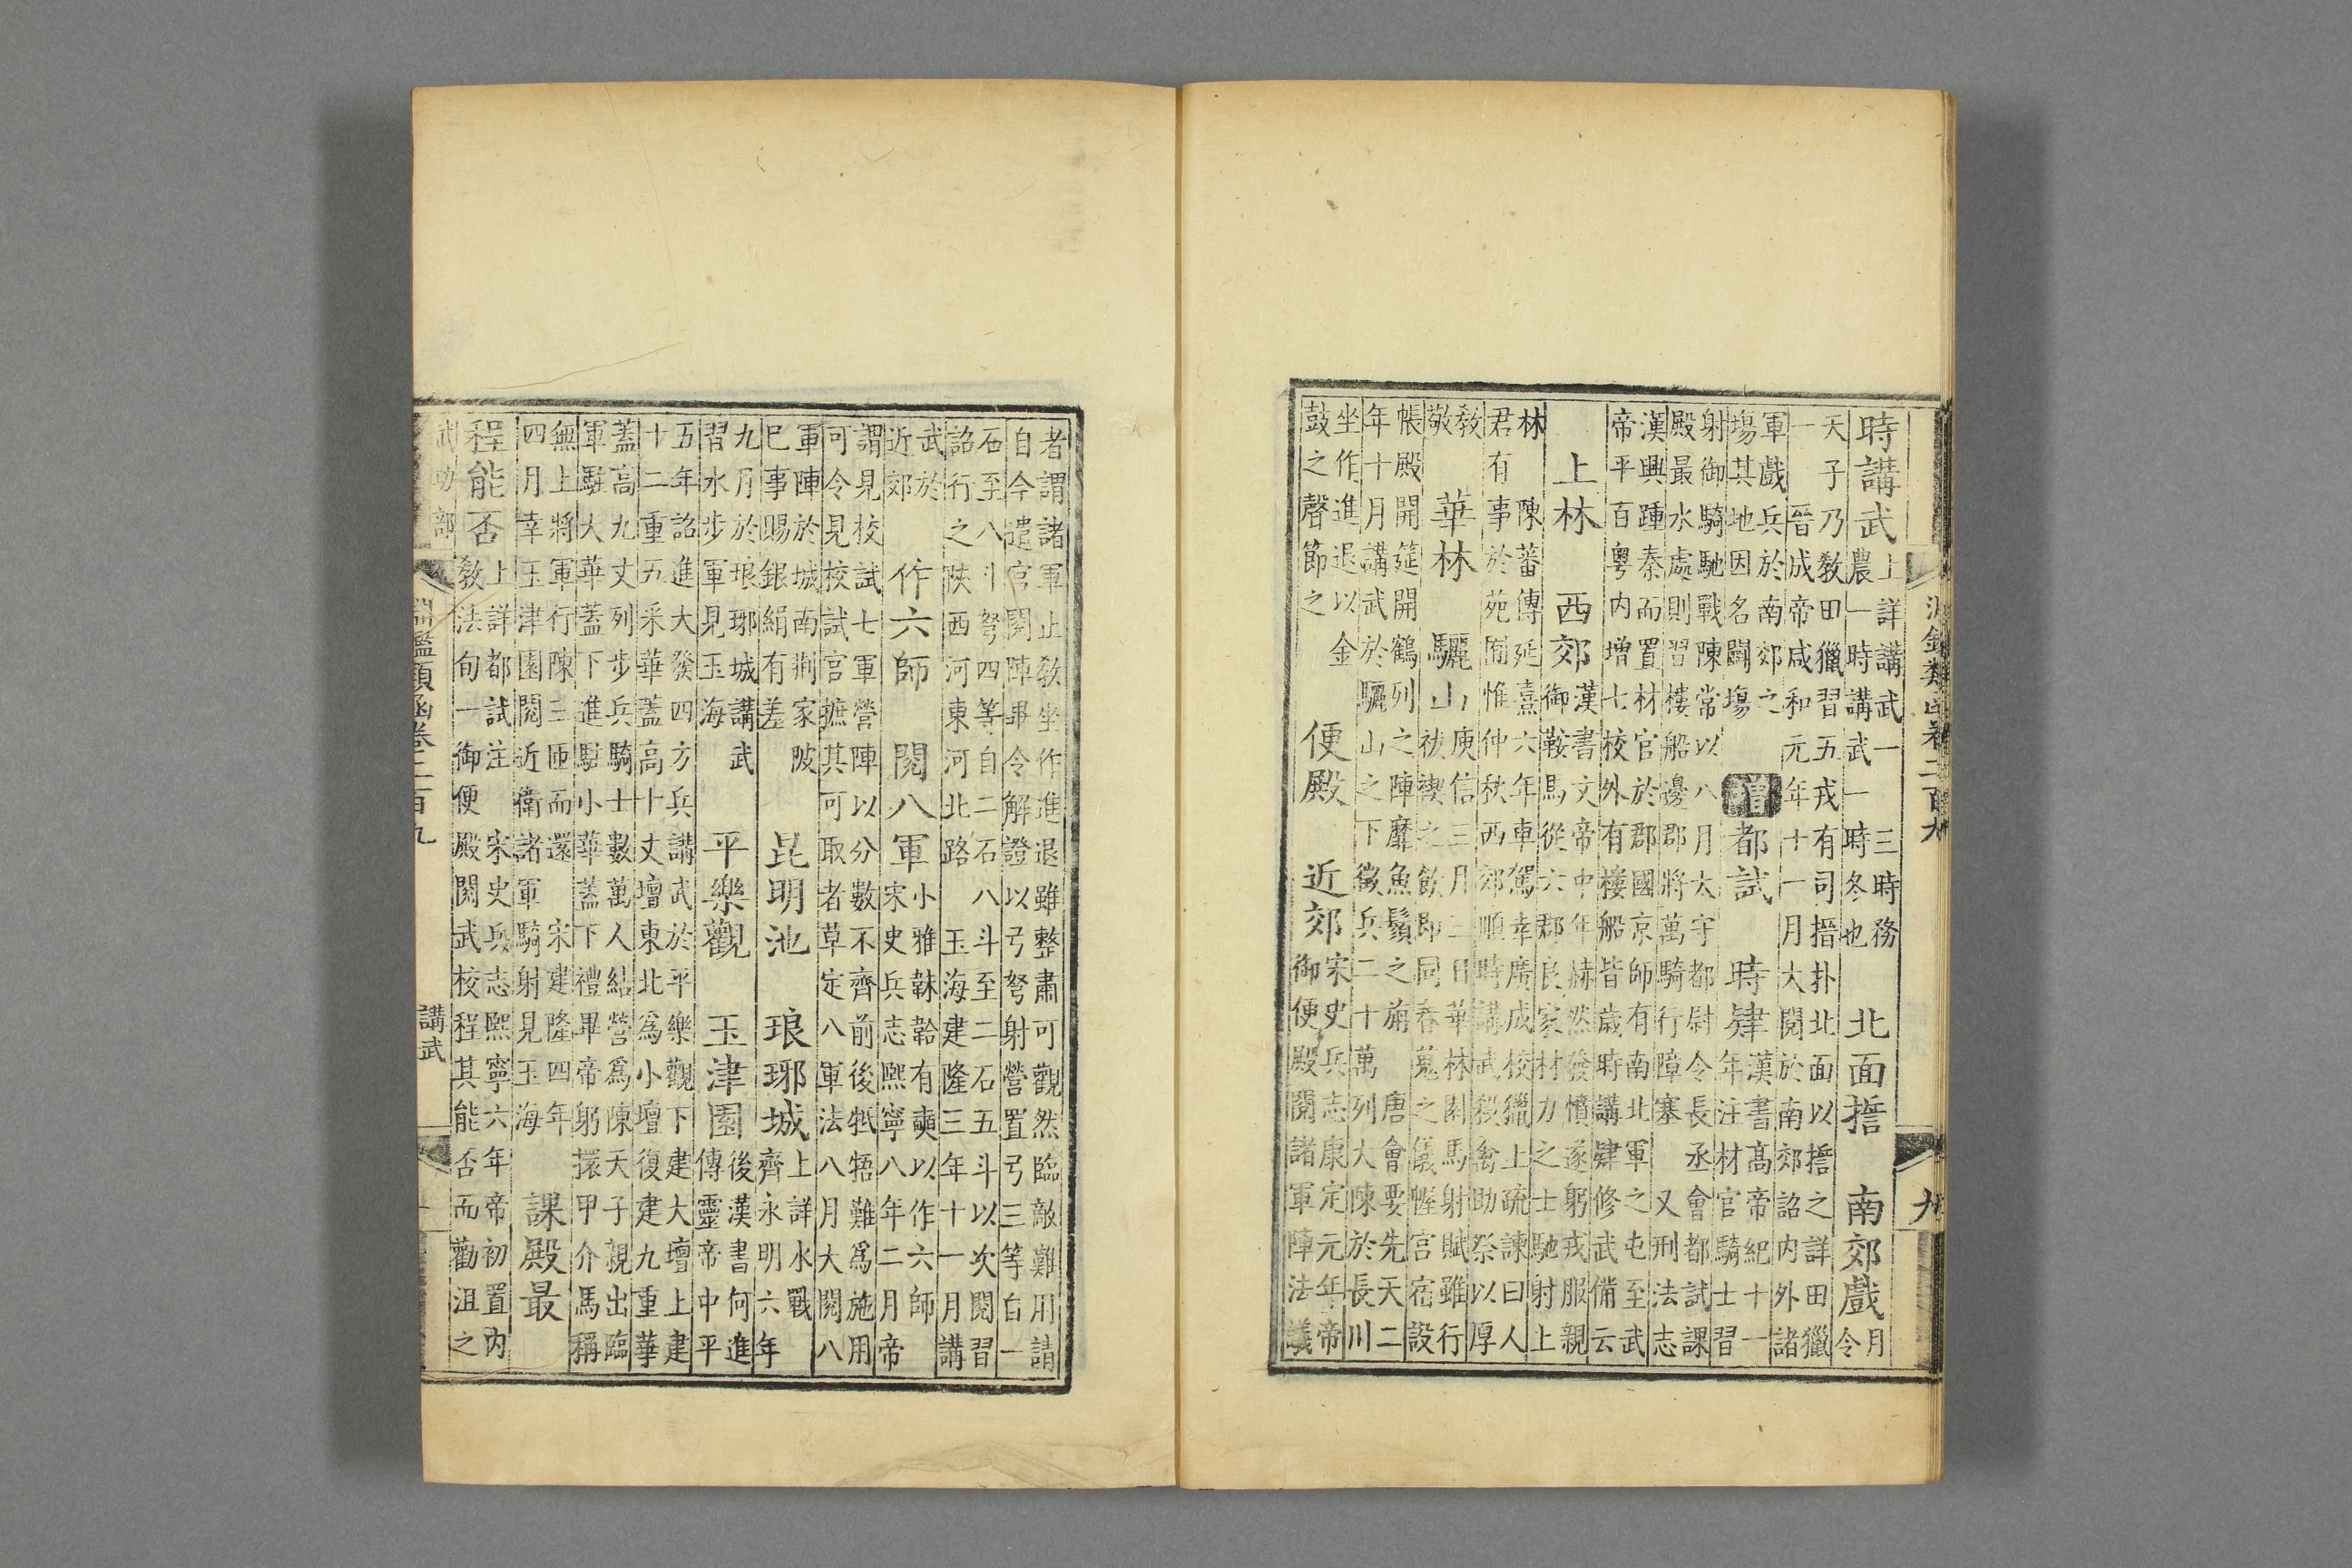 淵鑑類函卷二百九 九
時講武
上詳講武一 三時務
農一時講武一 時冬也
北面搢 南郊戲
月
令
天子乃教田獵習五戎有司搢扑北面以搢之詳田獵
一 晉成帝咸和元年十一月大閱於南郊詔内外諸
軍戲兵於南郊之
場其地因名鬭場
增 都試 時肄
漢書髙帝紀十一
年注材官騎士習
射御騎馳戰陳常以八月太守都尉令長丞會都試課
殿最水處則習樓船邊郡將萬騎行障塞 又刑法志
漢興踵秦而置材官於郡國京師有南北軍之屯至武
帝平百粤内增七校外有樓船皆歲時講肄修武備云
上林 西郊
漢書文帝中年赫然發憤遂躬戎服親
御鞍馬從六郡良家材力之士馳射上
林 陳蕃傳延熹六年車駕幸廣成校獵上疏諫曰人
君有事於苑囿惟仲秋西郊順時講武殺禽助祭以厚
敎
敬
華林 驪山
庾信三月三日華林園馬射賦雖行
祓禊之飲即同春蒐之儀幄宫宿設
帳殿開筵開鶴列之陣靡魚鬚之旃 唐會要先天二
年十月講武於驪山之下徵兵二十萬列大陳於長川
坐作進退以金
鼓之聲節之
便殿 近郊
宋史兵志康定元年帝
御便殿閱諸軍陣法議
者謂諸軍止敎坐作進退雖整肅可觀然臨敵難用請
自今遣官閱陣畢令解證以弓弩射營置弓三等自一
石至八斗弩四等自二石八斗至二石五斗以次閱習
詔行之陜西河東河北路 玉海建隆三年十一月講
武於
近郊
作六師 閱八軍
小雅韎韐有奭以作六師
宋史兵志熙寧八年二月帝
謂見校試七軍營陣以分數不齊前後牴牾難爲施用
可令見校試官摭其可取者草定八軍法八月大閱八
軍陣於城南荆家陂
巳事賜銀絹有差
昆明池 琅琊城
上詳水戰
齊永明六年
九月於琅琊城講武
習水步軍見玉海
平樂觀 玉津園
後漢書何進
傳靈帝中平
五年詔進大發四方兵講武於平樂觀下建大壇上建
十二重五采華蓋高十丈壇東北爲小壇復建九重華
蓋高九丈列步兵騎士數萬人結營爲陳天子親出臨
軍駐大華蓋下進駐小華蓋下禮畢帝躬擐甲介馬稱
無上將軍行陳三匝而還 宋建隆四年
四月幸玉津園閱近衛諸軍騎射見玉海
課殿最
程能否
上詳都試注 宋史兵志熙寧六年帝初置内
敎法旬一御便殿閱武校程其能否而勸沮之
武功部 淵鑑類函卷二百九 講武